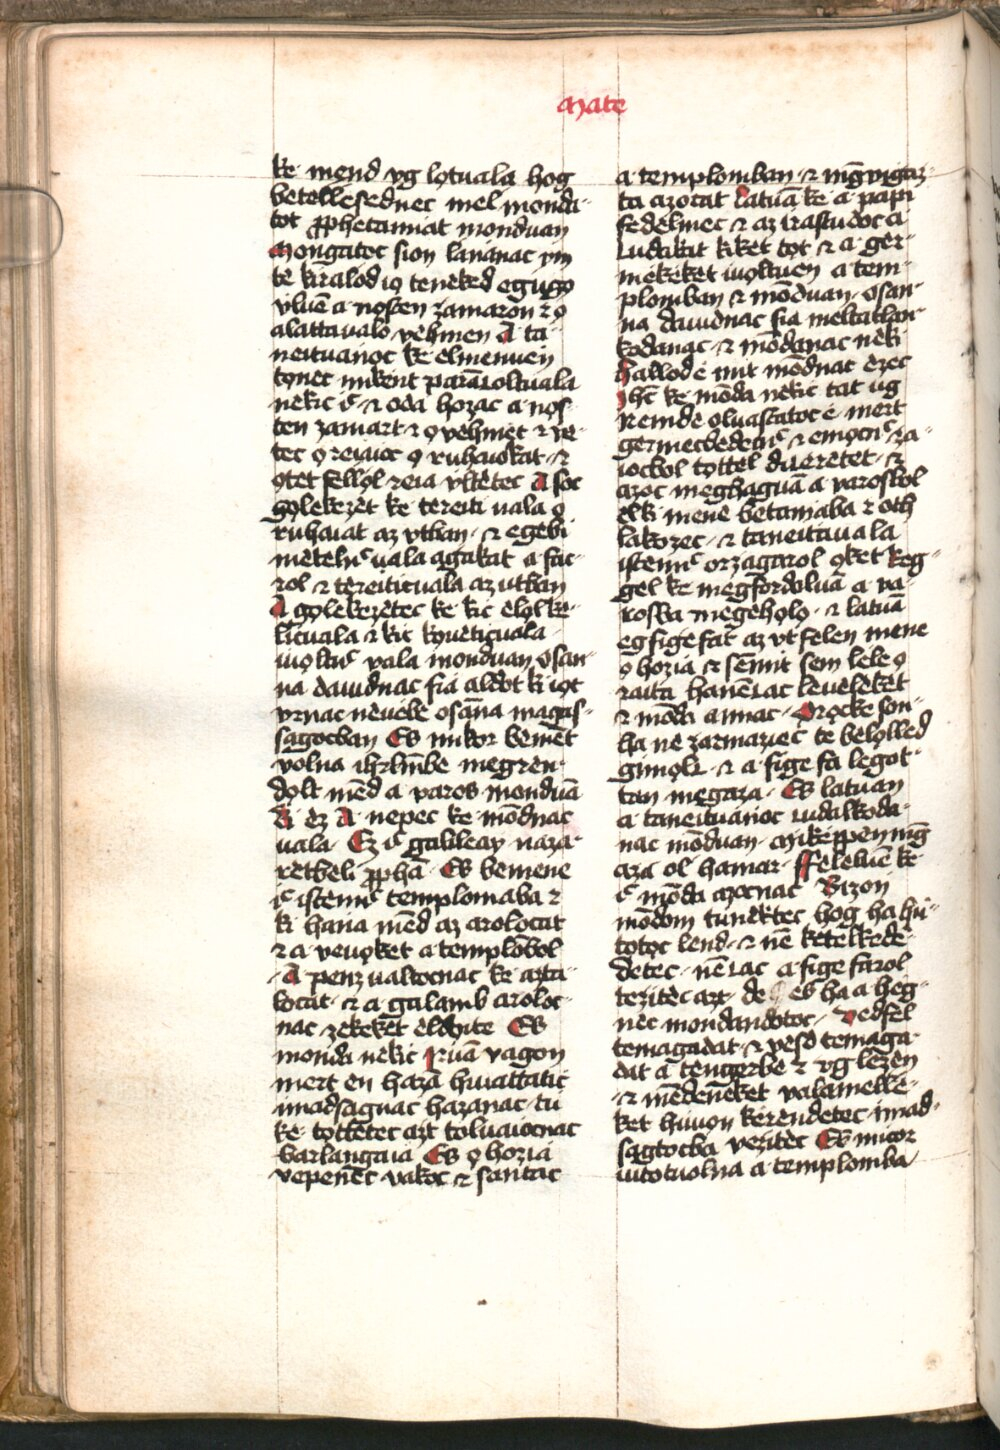 mate
ke mend vg lotuala hog
betellesednec mel monda-
tot prophetanniat monduan
Mongatoc sion lananac ym
te kiralod io teneked eguģo
vluē a nosten zamaron ⁊ o
alattaualo vehmen A ta-
neituanoc ke elmenuen
tonec mikent parāčoltuala
nekic ic̄ ⁊ oda hozac a nos-
ten zamart ⁊ o vehmet ⁊ ve-
tec o reiaioc o ruhaiokat ⁊
otet fellol reia vltètec A soc
golekezet ke tereiti uala o
ruhaiat az vtban ⁊ egebi
metelnc̄ uala agakat a fac-
rol ⁊ tèreiticuala az utban
A golekezètec ke kic èlolke-
licuala ⁊ kic kouèticuala
iuoltnc̄ vala monduan osan-
na dauidnac fia aldot ki iot
vrnac nèuèbè osāna magas-
sagocban Es mikor bèment
volna ihrlm̄be megren-
dolt mēd a varos monduā
Ki èz A nepec ke mōdnac
uala Ez ic̄ galileay naza-
retbeli pphā Es bemene
ic̄ istennc̄ templomaba ⁊
ki haňa mēd az arolocat
⁊ a veuoket a templōbol
A penz ualtocnac ke azta-
locat ⁊ a galamb aroloc-
nac zekeket eldoite Es
monda nekic Iruā vagon
mert en hazā hiuattatic
imadsagnac hazanac tu
ke tottètec azt toluaiocnac
barlangaia Es o hozia
vepenèc vakoc ⁊ santac
a templomban ⁊ mgvigaz-
ta azocat Latuā ke a papi
fedelmec ⁊ az irastudoc a
čudakat kiket tot ⁊ a ger-
mekeket iuoltuen a tem-
plomban ⁊ mōduan osan-
na dauidnac fia meltatlan-
kodanac ⁊ mōdanac neki
Hallodè mit mōdnac ezec
Ihc̄ ke mōda nekic tat ug
nemde oluastatocè mert
germecdedecnc̄ ⁊ emocnc̄ za-
iocbol tottel dičeretet ⁊
azoc meghaguā a varosbol
èlki mene betaniaba ⁊ oth
lakozec ⁊ taneitauala
istennc̄ orzagarol oket Reg-
gel ke megfordoluā a va-
rosba megeholo ⁊ latuā
eg figefat az vt felen mene
o hozia ⁊ sèmit sem lele o
raita hanēčac leueleket
⁊ mōda annac Orocke son-
ha ne zarmaziec te belolled
gimolč ⁊ a fige fa legot-
tan megaza Es latuan
a taneituanoc čudalkoda-
nac mōduan mikeppen mg̅
aza ol hamar Felèluē ke
ic̄ mōda azocnac Bizon
mōdom tunektec hog ha hů-
totoc lend ⁊ nē ketelkede-
detec nēčac a fige farol
tezitèc azt de es ha a heg-
nec mondandotoc Vedfel
temagadat ⁊ vesd temaga-
dat a tengerbe ⁊ vg lezen
⁊ mēdeneket valamelle-
ket hiuon kerendetec imad-
sagtocba vezitèc Es micor
iutotuolna a templomba